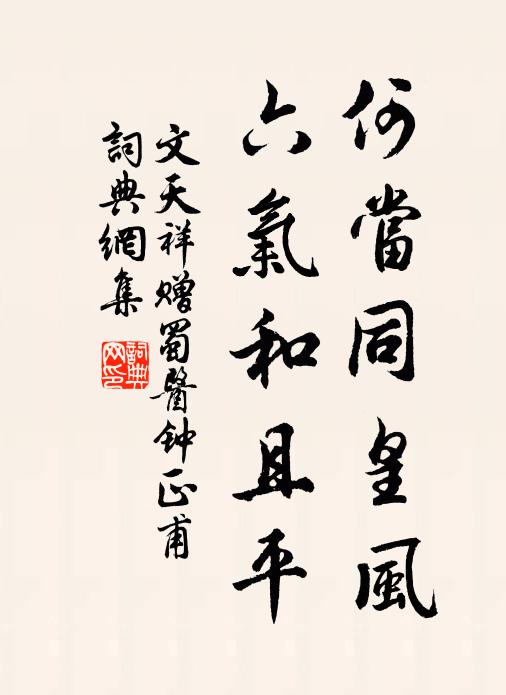 何當同皇風
六氣和且平
文天祥贈蜀醫钟正甫
詞典網集
詞典網印